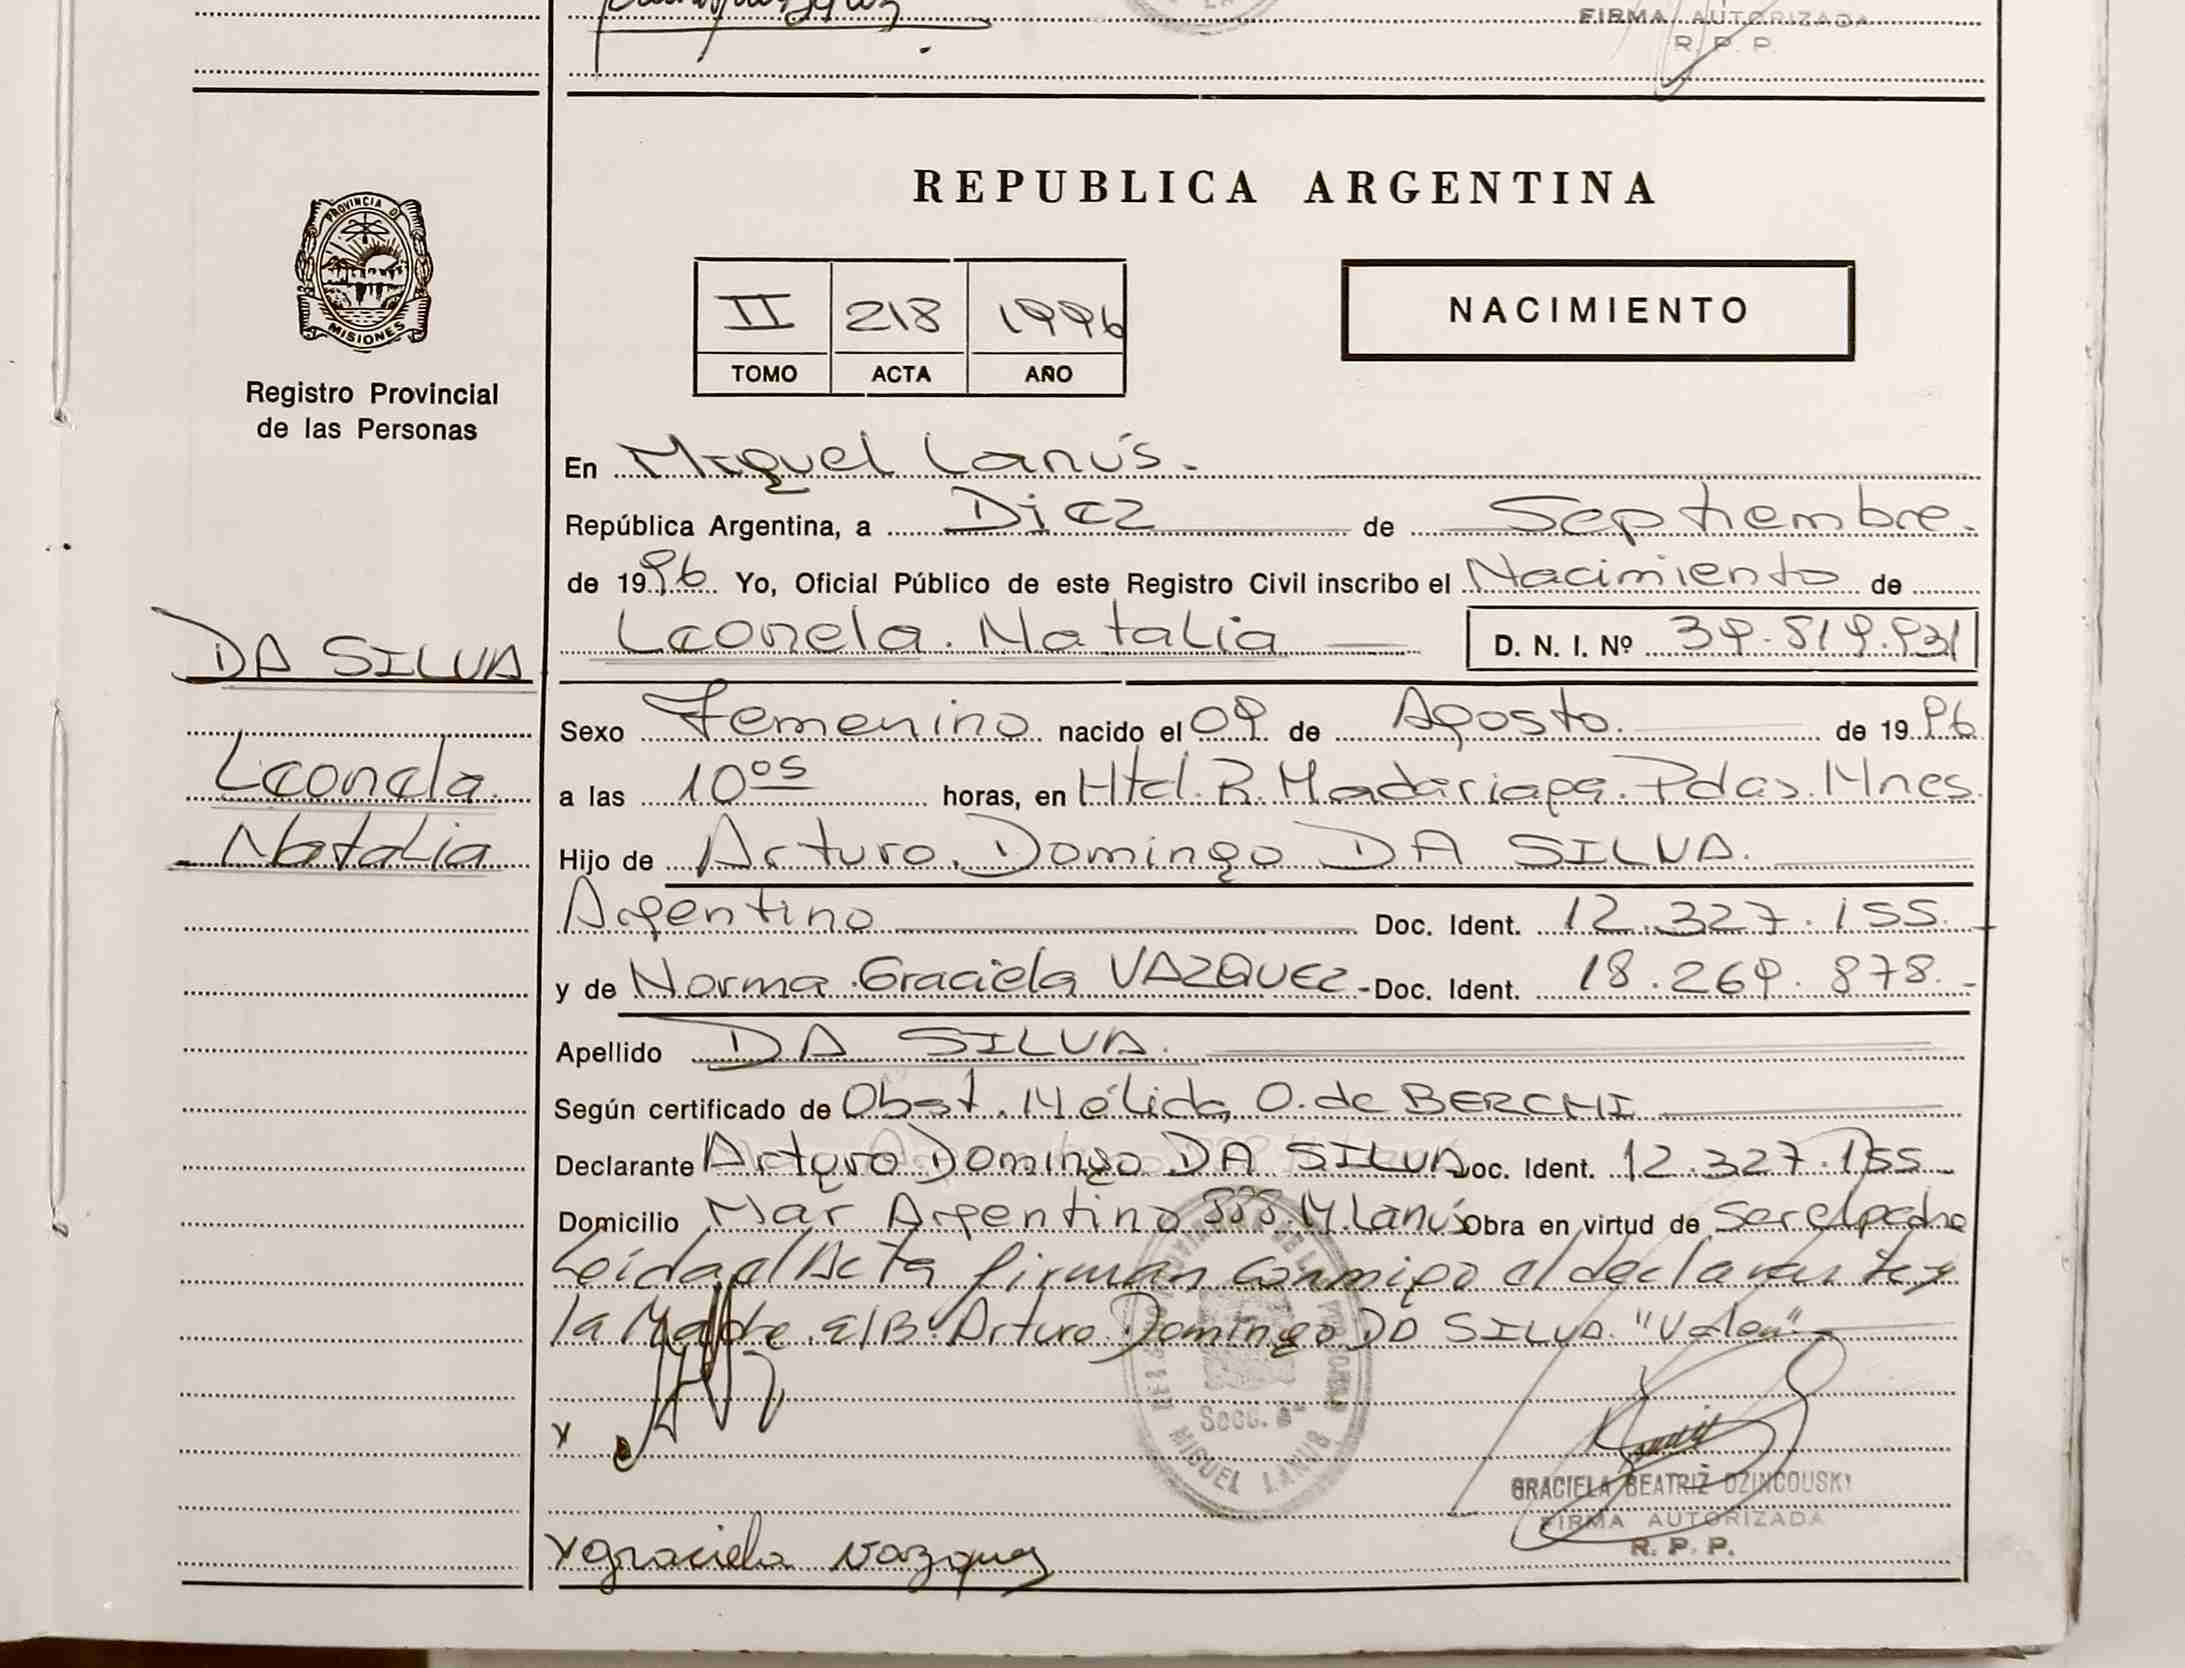 FIRMA AUTORIZADA
R. P. P.
PROVINCIA DE
MISIONES
Registro Provincial
de las Personas
REPUBLICA ARGENTINA
II 218 1996
TOMO ACTA AÑO
NACIMIENTO
En Miguel Lanús.
República Argentina, a Diez de Septiembre.
de 1996 Yo, Oficial Público de este Registro Civil inscribo el Nacimiento de
Leonela. Natalia D. N. I. Nº 39.819.931
DA SILVA
Leonela
Natalia
Sexo Femenino nacido el 09 de Agosto. de 1996
a las 10 05 horas, en Htal. R. Madariaga. Pdas. Mnes.
Hijo de Arturo. Domingo DA SILVA.
Argentino Doc. Ident. 12.327.155.
y de Norma Graciela VAZQUEZ - Doc. Ident. 18.269.878.-
Apellido DA SILVA.
Según certificado de Obst. Nélida O. de BERCHI
Declarante Arturo Domingo DA SILVA Doc. Ident. 12.327.155
Domicilio Mar Argentino 555 M. Lanús Obra en virtud de Ser el padre
Leída el Acta firman conmigo el declarante y
la Madre. E/B: Arturo Domingo DA SILVA. "Vale"
Secc. 8ª
MIGUEL LANUS
GRACIELA BEATRIZ DZINCOUSKY
FIRMA AUTORIZADA
R. P. P.
x
x graciela vazquez